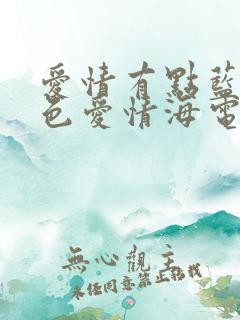 愛情有點藍
色愛情海電
無心觀主
未經同意禁止轉載